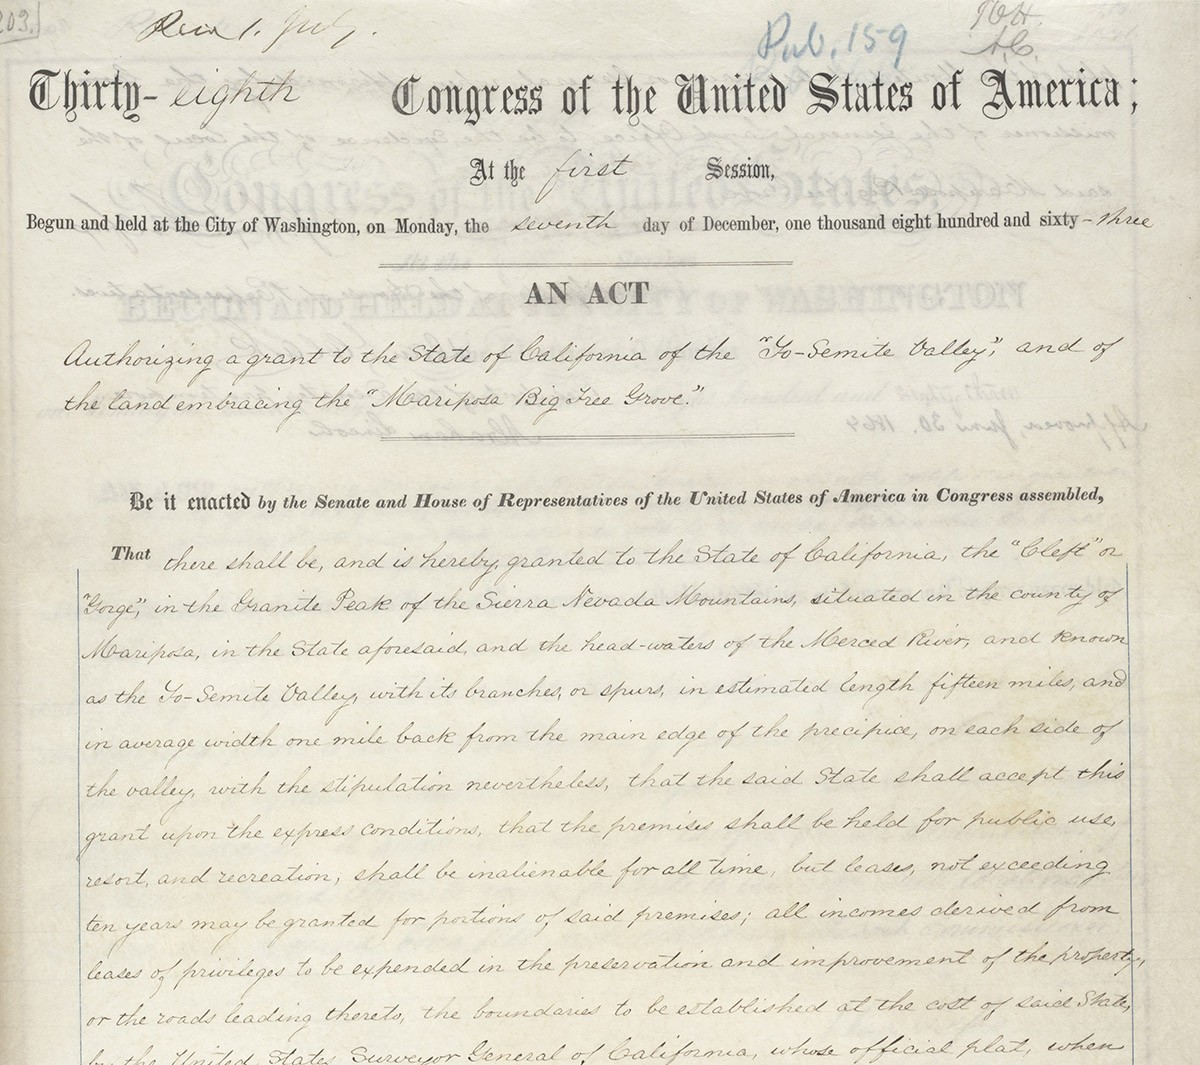 203.
Pub. 159
Thirty-eighth Congress of the United States of America;
At the first Session,
Begun and held at the City of Washington, on Monday, the seventh day of December, one thousand eight hundred and sixty-three
AN ACT
Authorizing a grant to the State of California of the "Yo-Semite Valley", and of
the land embracing the "Mariposa Big Tree Grove."
Be it enacted by the Senate and House of Representatives of the United States of America in Congress assembled,
That there shall be, and is hereby, granted to the State of California, the "Cleft" or
"Gorge", in the Granite Peak of the Sierra Nevada Mountains, situated in the county of
Mariposa, in the State aforesaid, and the head-waters of the Merced River, and known
as the Yo-Semite Valley, with its branches, or spurs, in estimated length fifteen miles, and
in average width one mile back from the main edge of the precipice, on each side of
the valley, with the stipulation nevertheless, that the said State shall accept this
grant upon the express conditions, that the premises shall be held for public use,
resort, and recreation; shall be inalienable for all time, but leases, not exceeding
ten years may be granted for portions of said premises; all incomes derived from
leases of privileges to be expended in the preservation and improvement of the property,
or the roads leading thereto, the boundaries to be established at the cost of said State,
by the United States Surveyor General of California, whose official plat, when